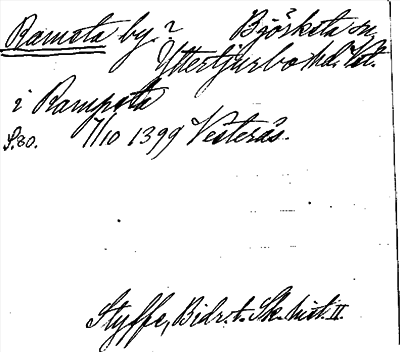 Ramsta by. ? Björksta sn,
Yttertjurbo hd. Vst.
i Rampsta
S. 30. 7/10 1399 Vesterås.
Styffe, Bidr. t. Sk. hist. II.